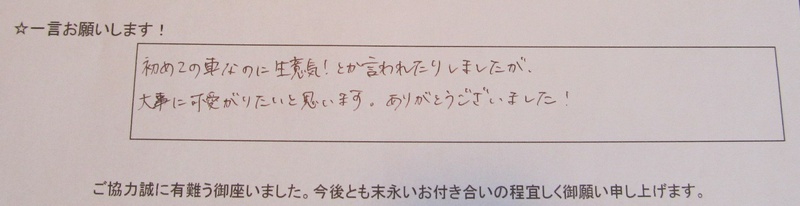 ☆一言お願いします！
初めての車なのに生意気！とか言われたりしましたが、
大事に可愛がりたいと思います。ありがとうございました！
ご協力誠に有難う御座いました。今後とも末永いお付き合いの程宜しく御願い申し上げます。